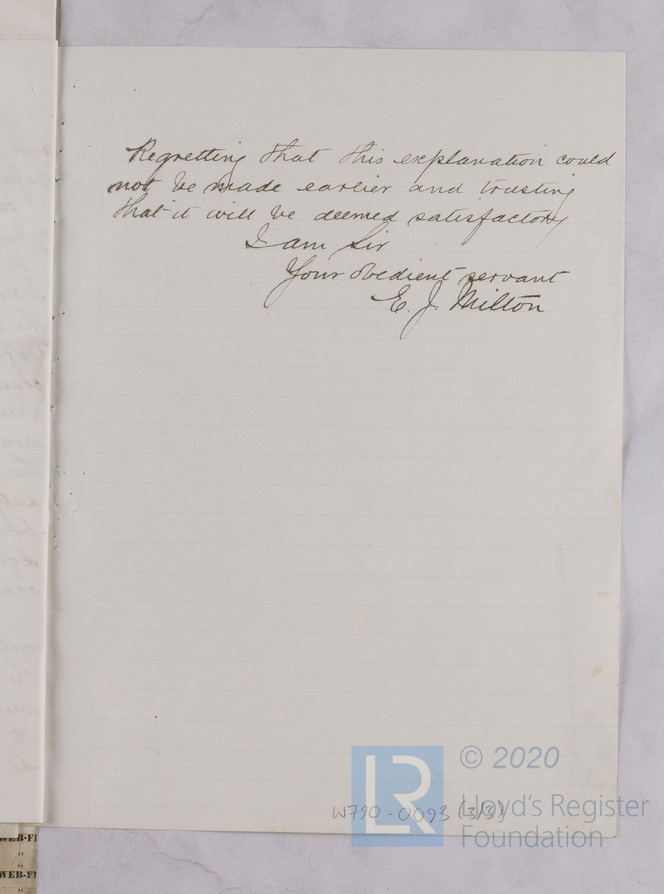 Regretting that this explanation could
not be made earlier and trusting
that it will be deemed satisfactory
I am Sir
Your obedient servant
E. J. Milton
W790-0093 (3/3)
LR
© 2020
Lloyd's Register
Foundation
WEB-F
"
"
WEB-F
"